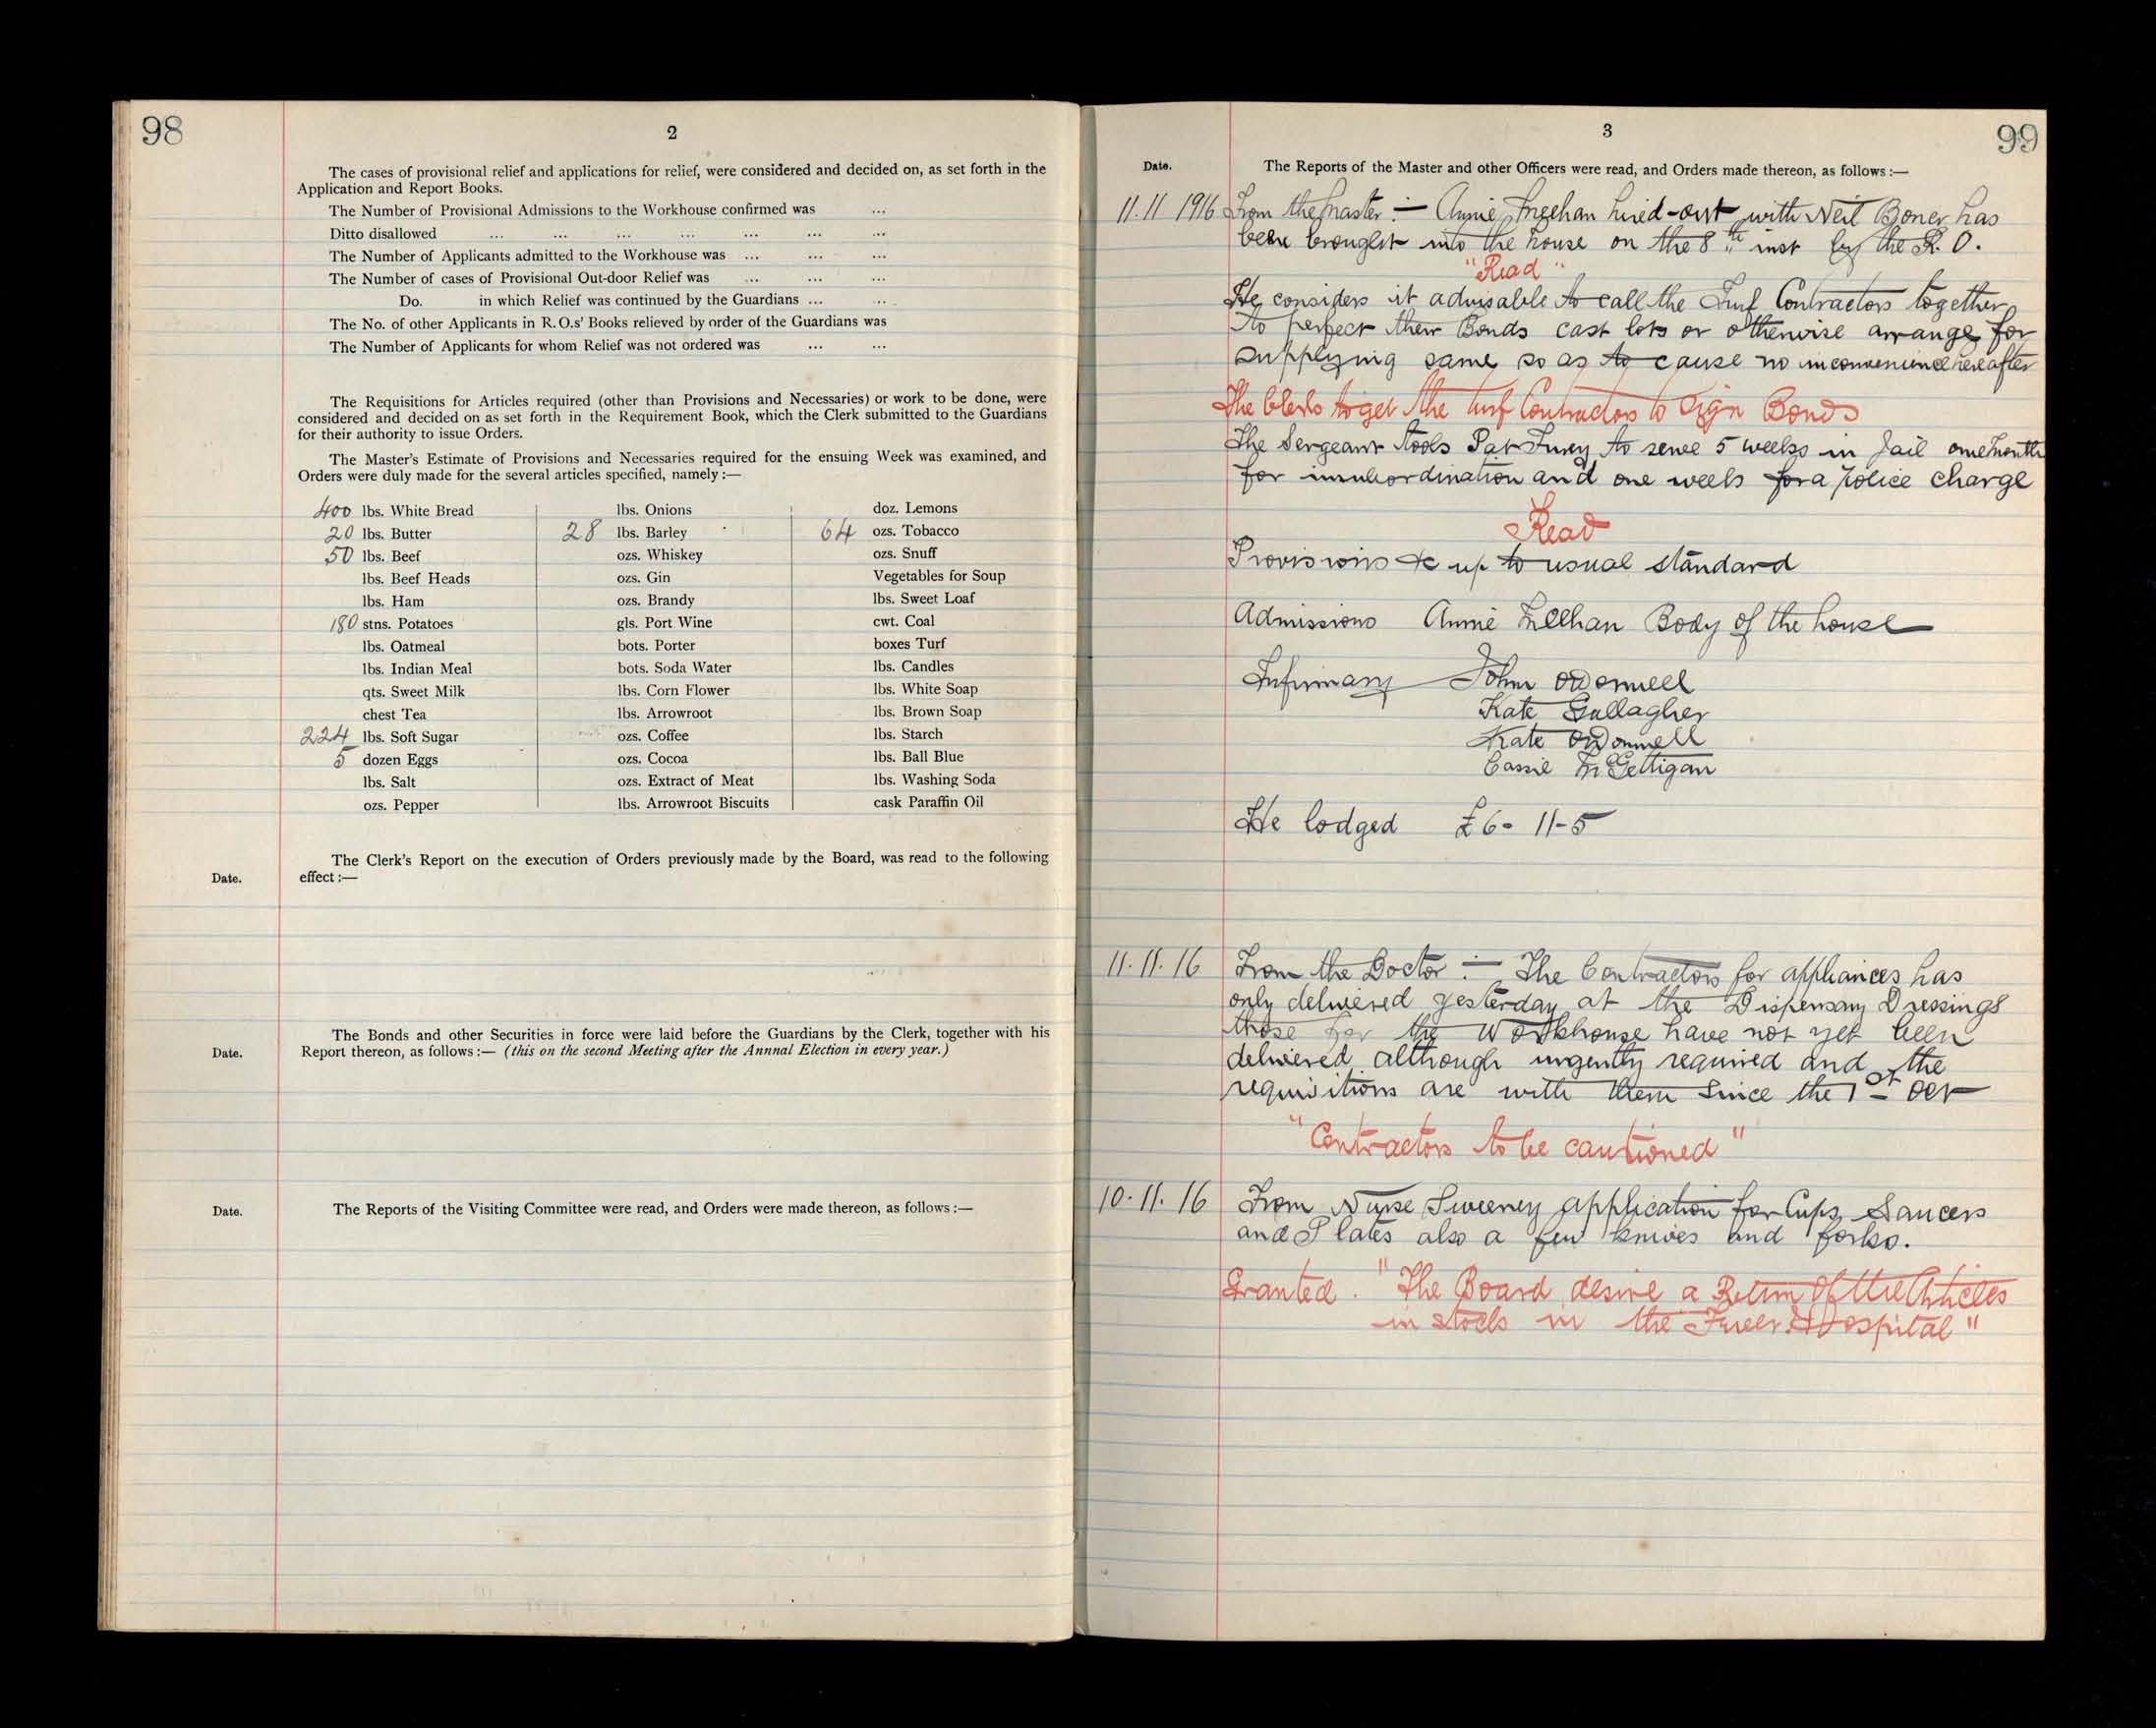 98
2
The cases of provisional relief and applications for relief, were considered and decided on, as set forth in the
Application and Report Books.
The Number of Provisional Admissions to the Workhouse confirmed was ...
Ditto disallowed ... ... ... ... ... ... ...
The Number of Applicants admitted to the Workhouse was ... ... ...
The Number of cases of Provisional Out-door Relief was ... ... ...
Do. in which Relief was continued by the Guardians ... ...
The No. of other Applicants in R.O.s' Books relieved by order of the Guardians was
The Number of Applicants for whom Relief was not ordered was ... ...
The Requisitions for Articles required (other than Provisions and Necessaries) or work to be done, were
considered and decided on as set forth in the Requirement Book, which the Clerk submitted to the Guardians
for their authority to issue Orders.
The Master's Estimate of Provisions and Necessaries required for the ensuing Week was examined, and
Orders were duly made for the several articles specified, namely :—
400 lbs. White Bread
20 lbs. Butter
50 lbs. Beef
lbs. Beef Heads
lbs. Ham
180 stns. Potatoes
lbs. Oatmeal
lbs. Indian Meal
qts. Sweet Milk
chest Tea
224 lbs. Soft Sugar
5 dozen Eggs
lbs. Salt
ozs. Pepper
lbs. Onions
28 lbs. Barley
ozs. Whiskey
ozs. Gin
ozs. Brandy
gls. Port Wine
bots. Porter
bots. Soda Water
lbs. Corn Flower
lbs. Arrowroot
ozs. Coffee
ozs. Cocoa
ozs. Extract of Meat
lbs. Arrowroot Biscuits
doz. Lemons
64 ozs. Tobacco
ozs. Snuff
Vegetables for Soup
lbs. Sweet Loaf
cwt. Coal
boxes Turf
lbs. Candles
lbs. White Soap
lbs. Brown Soap
lbs. Starch
lbs. Ball Blue
lbs. Washing Soda
cask Paraffin Oil
The Clerk's Report on the execution of Orders previously made by the Board, was read to the following
Date. effect :—
The Bonds and other Securities in force were laid before the Guardians by the Clerk, together with his
Date. Report thereon, as follows :— (this on the second Meeting after the Annnal Election in every year.)
Date. The Reports of the Visiting Committee were read, and Orders were made thereon, as follows :—
3
99
Date. The Reports of the Master and other Officers were read, and Orders made thereon, as follows :—
11.11 1916 From the Master :— Annie Meehan hired-out with Neil Boner has
been brought into the house on the 8th inst by the R.O.
"Read"
He considers it advisable to call the Turf Contractors together
to perfect their Bonds cast lots or otherwise arrange for
supplying same so as to cause no inconvenience hereafter
The Clerk to get the turf Contractors to sign Bonds
The Sergeant took Pat Furey to serve 5 weeks in Jail one month
for insubordination and one week for a police charge
Read
Provisions &c up to usual standard
Admissions Annie Meehan Body of the house
Infirmary John O'Donnell
Kate Gallagher
Kate O'Donnell
Cassie McGettigan
He lodged £6-11-5
11.11.16 From the Doctor :— The Contractors for appliances has
only delivered yesterday at the Dispensary Dressings
those for the Workhouse have not yet been
delivered although urgently required and the
requisitions are with them since the 1st Oct
"Contractors to be cautioned"
10.11.16 From Nurse Sweeney application for Cups, Saucers
and Plates also a few knives and forks.
Granted. "The Board desire a Return of the Articles
in stock in the Fever Hospital"